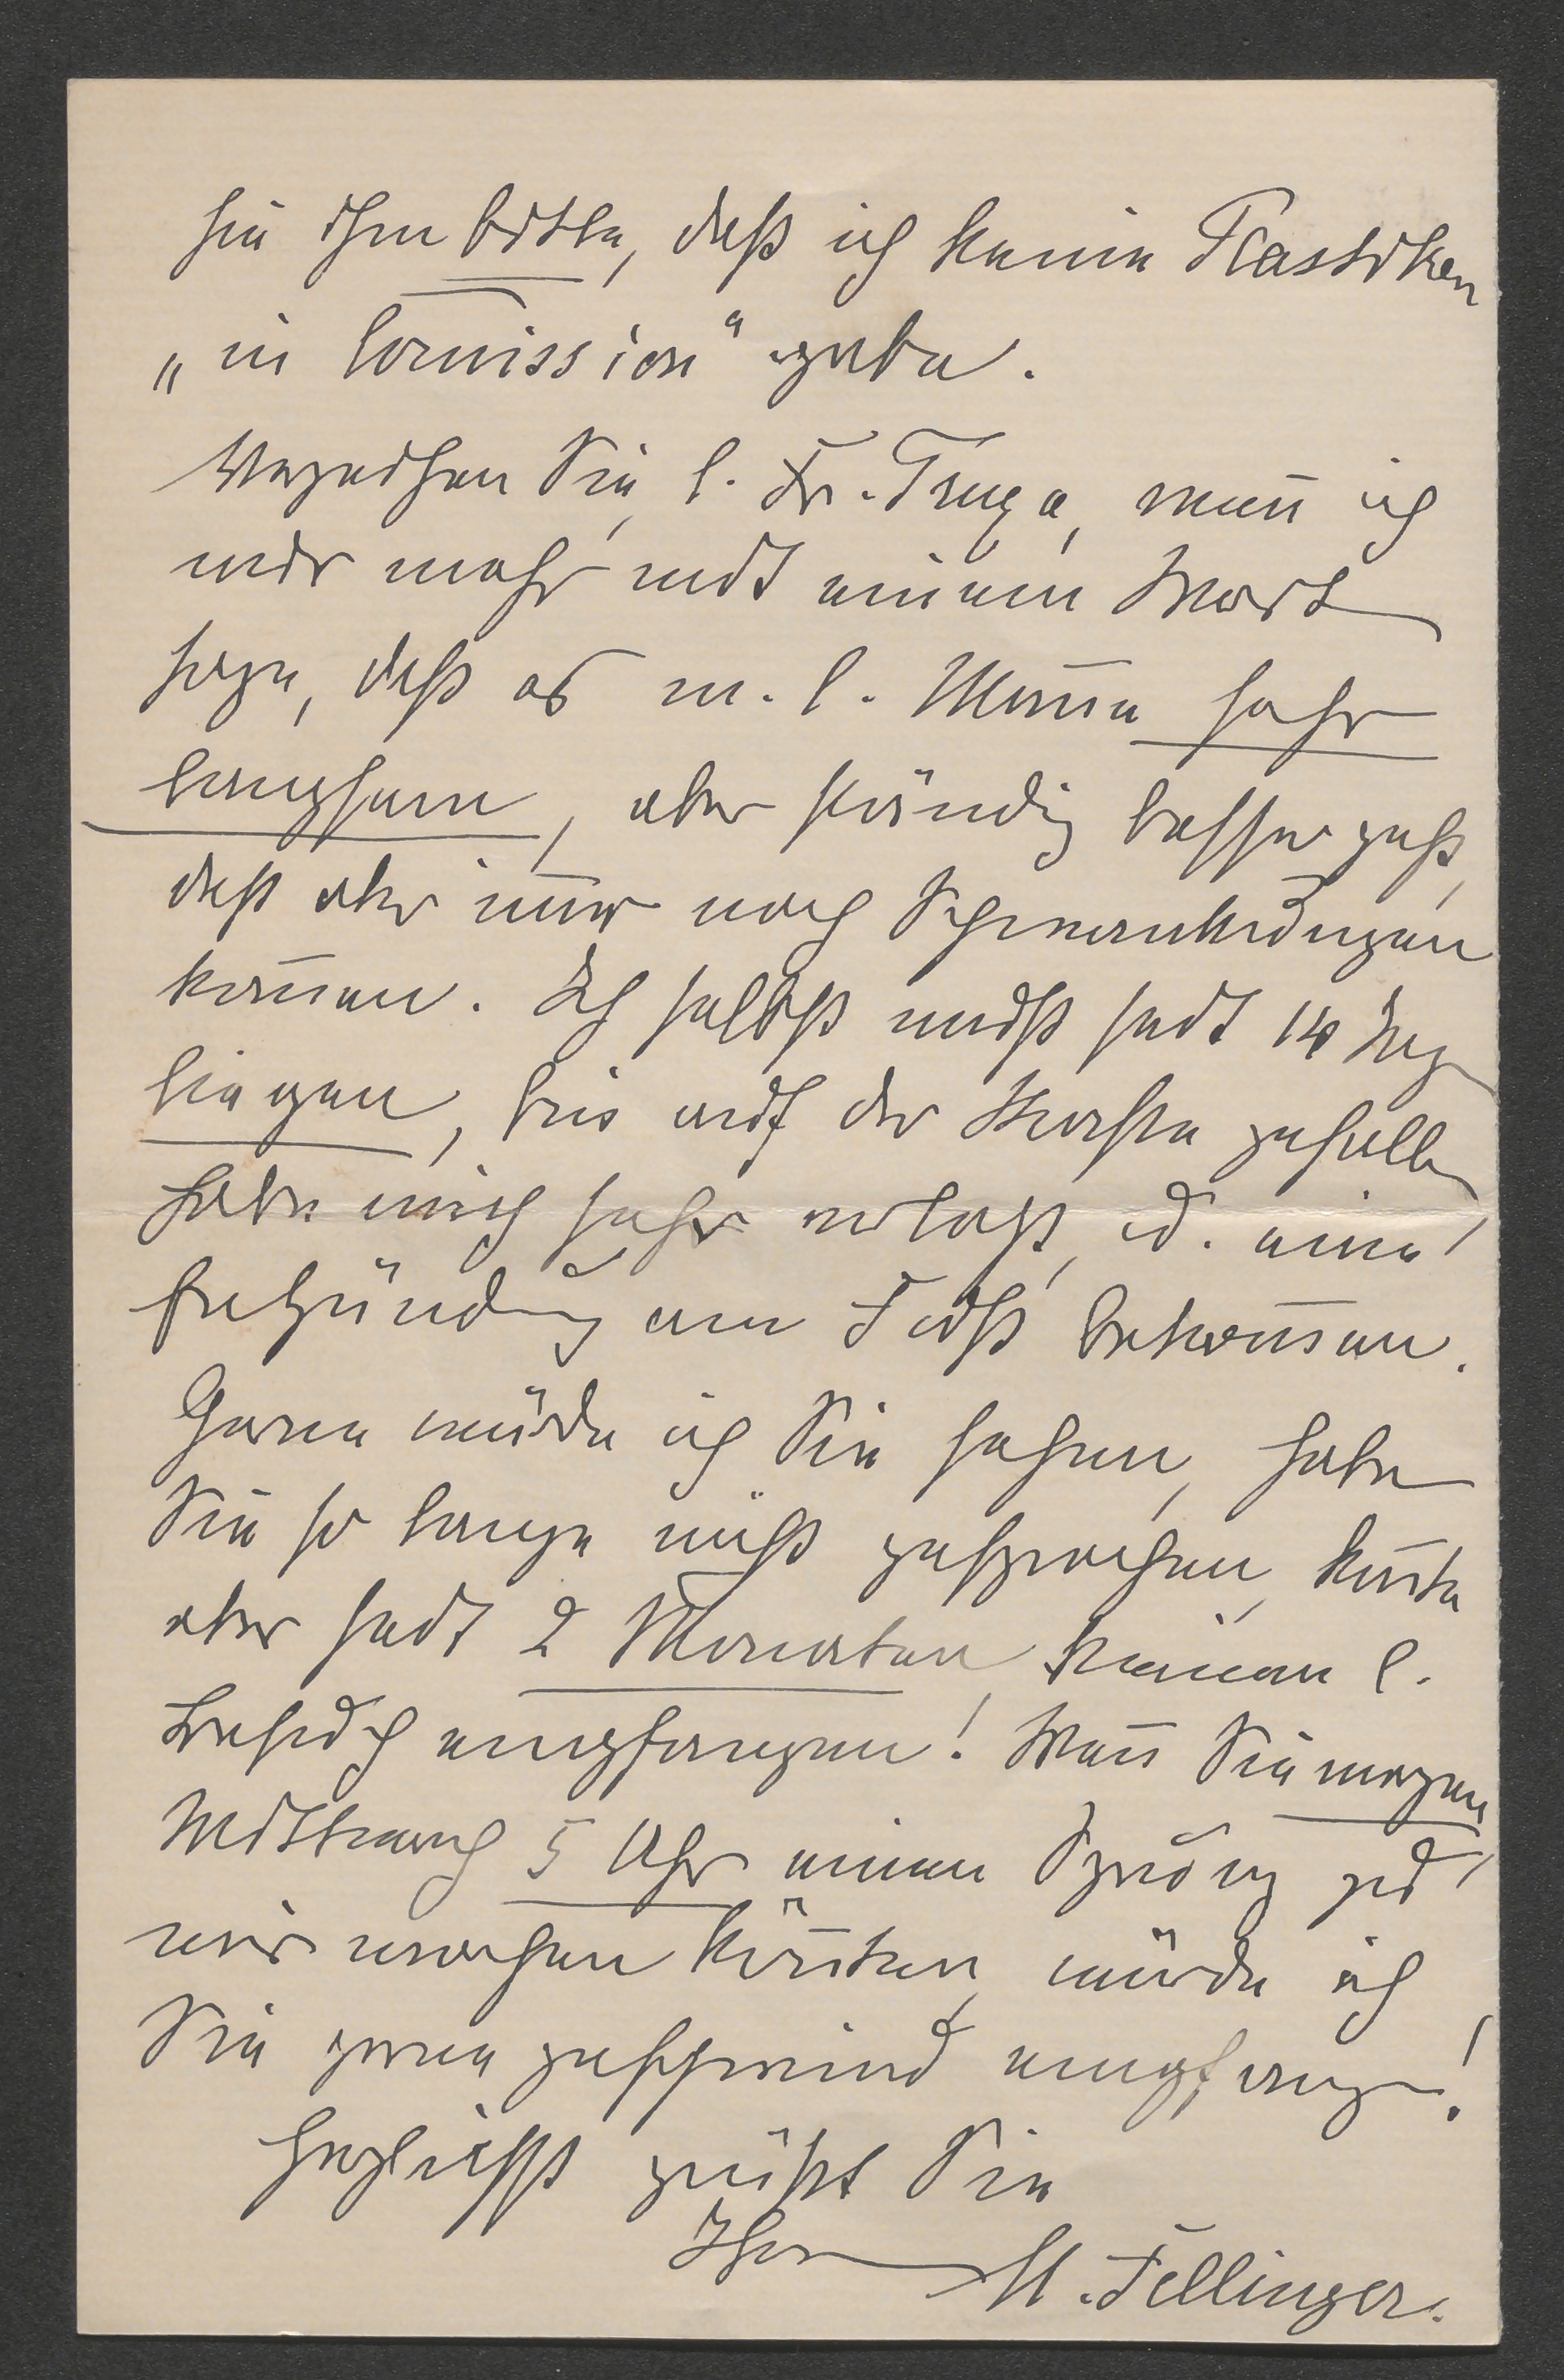 Sie ihm bitte, daß ich keine Plastiken
„in Com̄ission“ gebe.
Verzeihen Sie, l. Fr. Truxa, wen̄ ich
nur mehr mit einem Wort
sage, daß es m. l. Man̄e sehr
langsam, aber ständig besser geht,
daß aber im̄er noch Schwankungen
kom̄en. Ich selbst muß seit 14 Tag
liegen, bin auf der Straße gefallen,
habe mich sehr verletzt, u. eine
Entzündung am Fuß bekom̄en.
Gerne würde ich Sie sehen, habe
Sie so lange nicht gesprochen, kon̄te
aber seit 2 Monaten keinen l.
Besuch empfangen! Wen̄ Sie morgen
Mittwoch 5 Uhr einen Sprung zu
mir machen kön̄ten, würde ich
Sie gerne geschwind empfangen!
Herzlichst grüßt Sie
Ihre M. Fellinger.